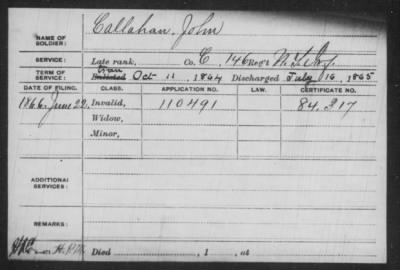 NAME OF SOLDIER: Callahan, John
SERVICE: Late rank, Co. C, 146 Reg't N.Y.
TERM OF SERVICE: Enlisted Oct 11, 1864 Discharged July 16, 1865
DATE OF FILING. CLASS. APPLICATION NO. LAW. CERTIFICATE NO.
1866. June 22. Invalid, 110491 84.217
Widow,
Minor,
ADDITIONAL SERVICES:
REMARKS:
Died , 1 , at